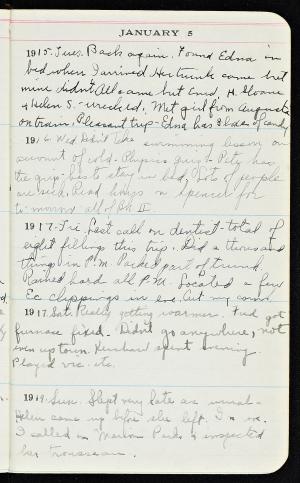 JANUARY 5
1915. Tues. Back again. Found Edna in
bed when I arrived. Her trunk came but
mine didn't. All came but Enid, H. Sloane
& Helen S. - wrecked. Met girl from Augusta
on train. Pleasant trip - Edna has 3 boxes of candy
1916 Wed. Didn't take swimming lesson on
account of cold. Physics quiz - Pety has
the grip - has to stay in bed. Lots of people
are sick. Read lines in Spencer for
to-morrow all of Bk II.
1917 - Fri. Last call on dentist - total of
eight fillings this trip. Did a thousand
things in P.M. Packed part of trunk.
Rained hard all P.M. Located a few
Ec clippings in eve. Cut my corn.
1917. Sat. Really getting warmer. Fred got
furnace fixed. Didn't go anywhere, not
even up town. spent evening.
Played vic. etc.
1919. Sun. Slept very late as usual -
Helen came up before she left. In eve.
I called on Marion Parks & inspected
her trousseau.